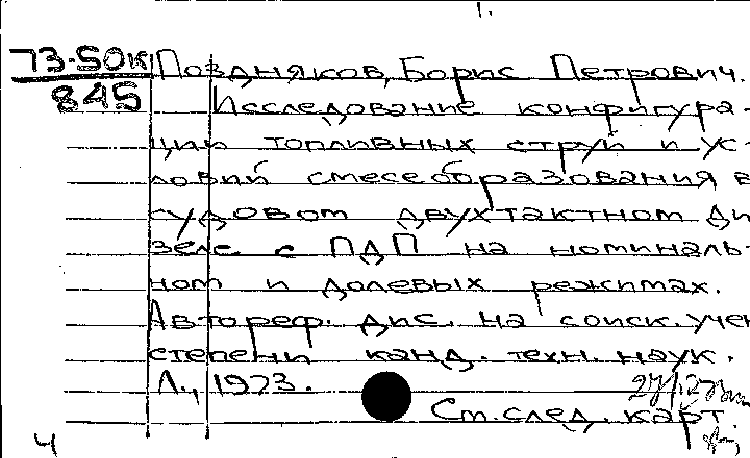 1.
73-50к Поздняков, Борис Петрович.
845 Исследование конфигура-
ции топливных струй и ус-
ловий смесеобразования в
судовом двухтактном ди
зеле с ПДП на номиналь-
ном и долевых режимах.
Автореф. дис. на соиск. учен
степени канд. техн. наук.
Л., 1973.
См. след. карт.
ч